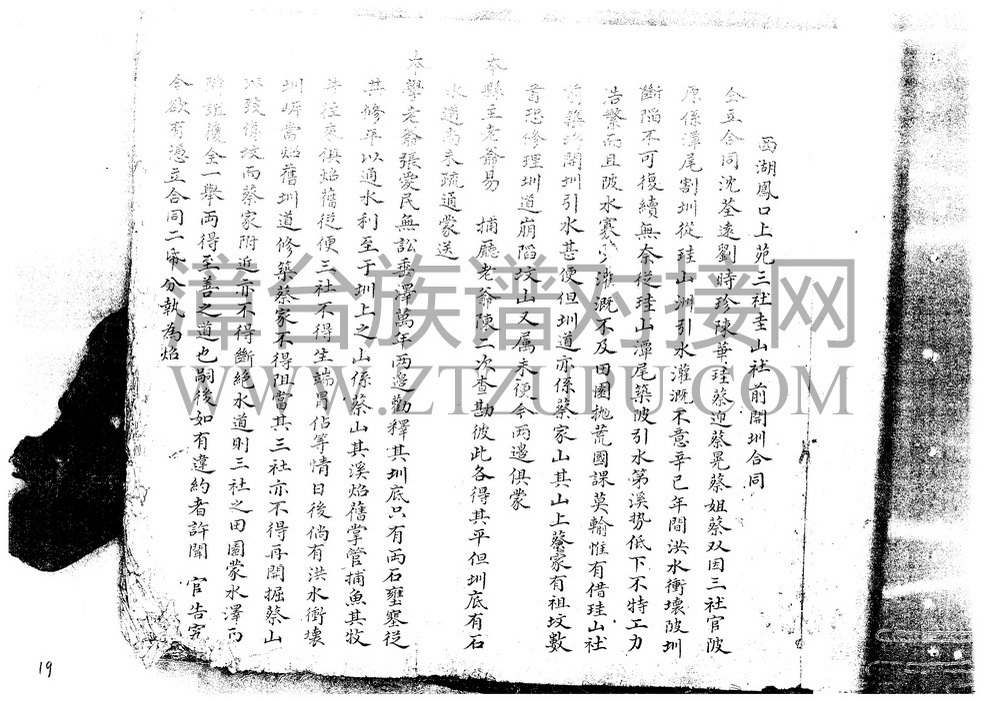 西湖鳳口上苑三社圭山社前開圳合同
仝立合同沈荃遠劉時珍陳華珪蔡迎蔡晃蔡姐蔡双因三社官陂
原係潭尾割圳從珪山洲引水灌溉不意辛已年間洪水衝壞陂圳
斷陷不可復續無奈從珪山潭尾築陂引水第溪势低下不特工力
浩繁而且陂水寡少灌溉不及田園抛荒國課莫輸惟有借珪山社
前築 開圳引水甚便但圳道亦係蔡家山其山上蔡家有祖坟數
首恐修理圳道崩陷坟山又属未便今两邉俱蒙
本縣主老爺易 捕廳老爺陳二次查勘彼此各得其平但圳底有石
水道尚未疏通蒙送
本學老爺張爱民無訟垂澤萬年两邉勸釋其圳底只有两石壅塞従
其修平以通水利至于圳上之山係蔡山其溪焰舊掌管捕魚其牧
牛往來俱焰舊従便三社不得生端冒佔等情日後倘有洪水衝壞
圳㟁當焰舊圳道修築蔡家不得阻當其三社亦不得再開掘蔡山
以致傷坟而蔡家附近亦不得斷絶水道則三社之田園蒙水澤而
隂 全一舉两得至善之道也嗣後如有違約者許聞 官告究
今欲有憑立合同二𢃄分執為焰
章台族谱对接网
WWW.ZTZUPU.COM
19